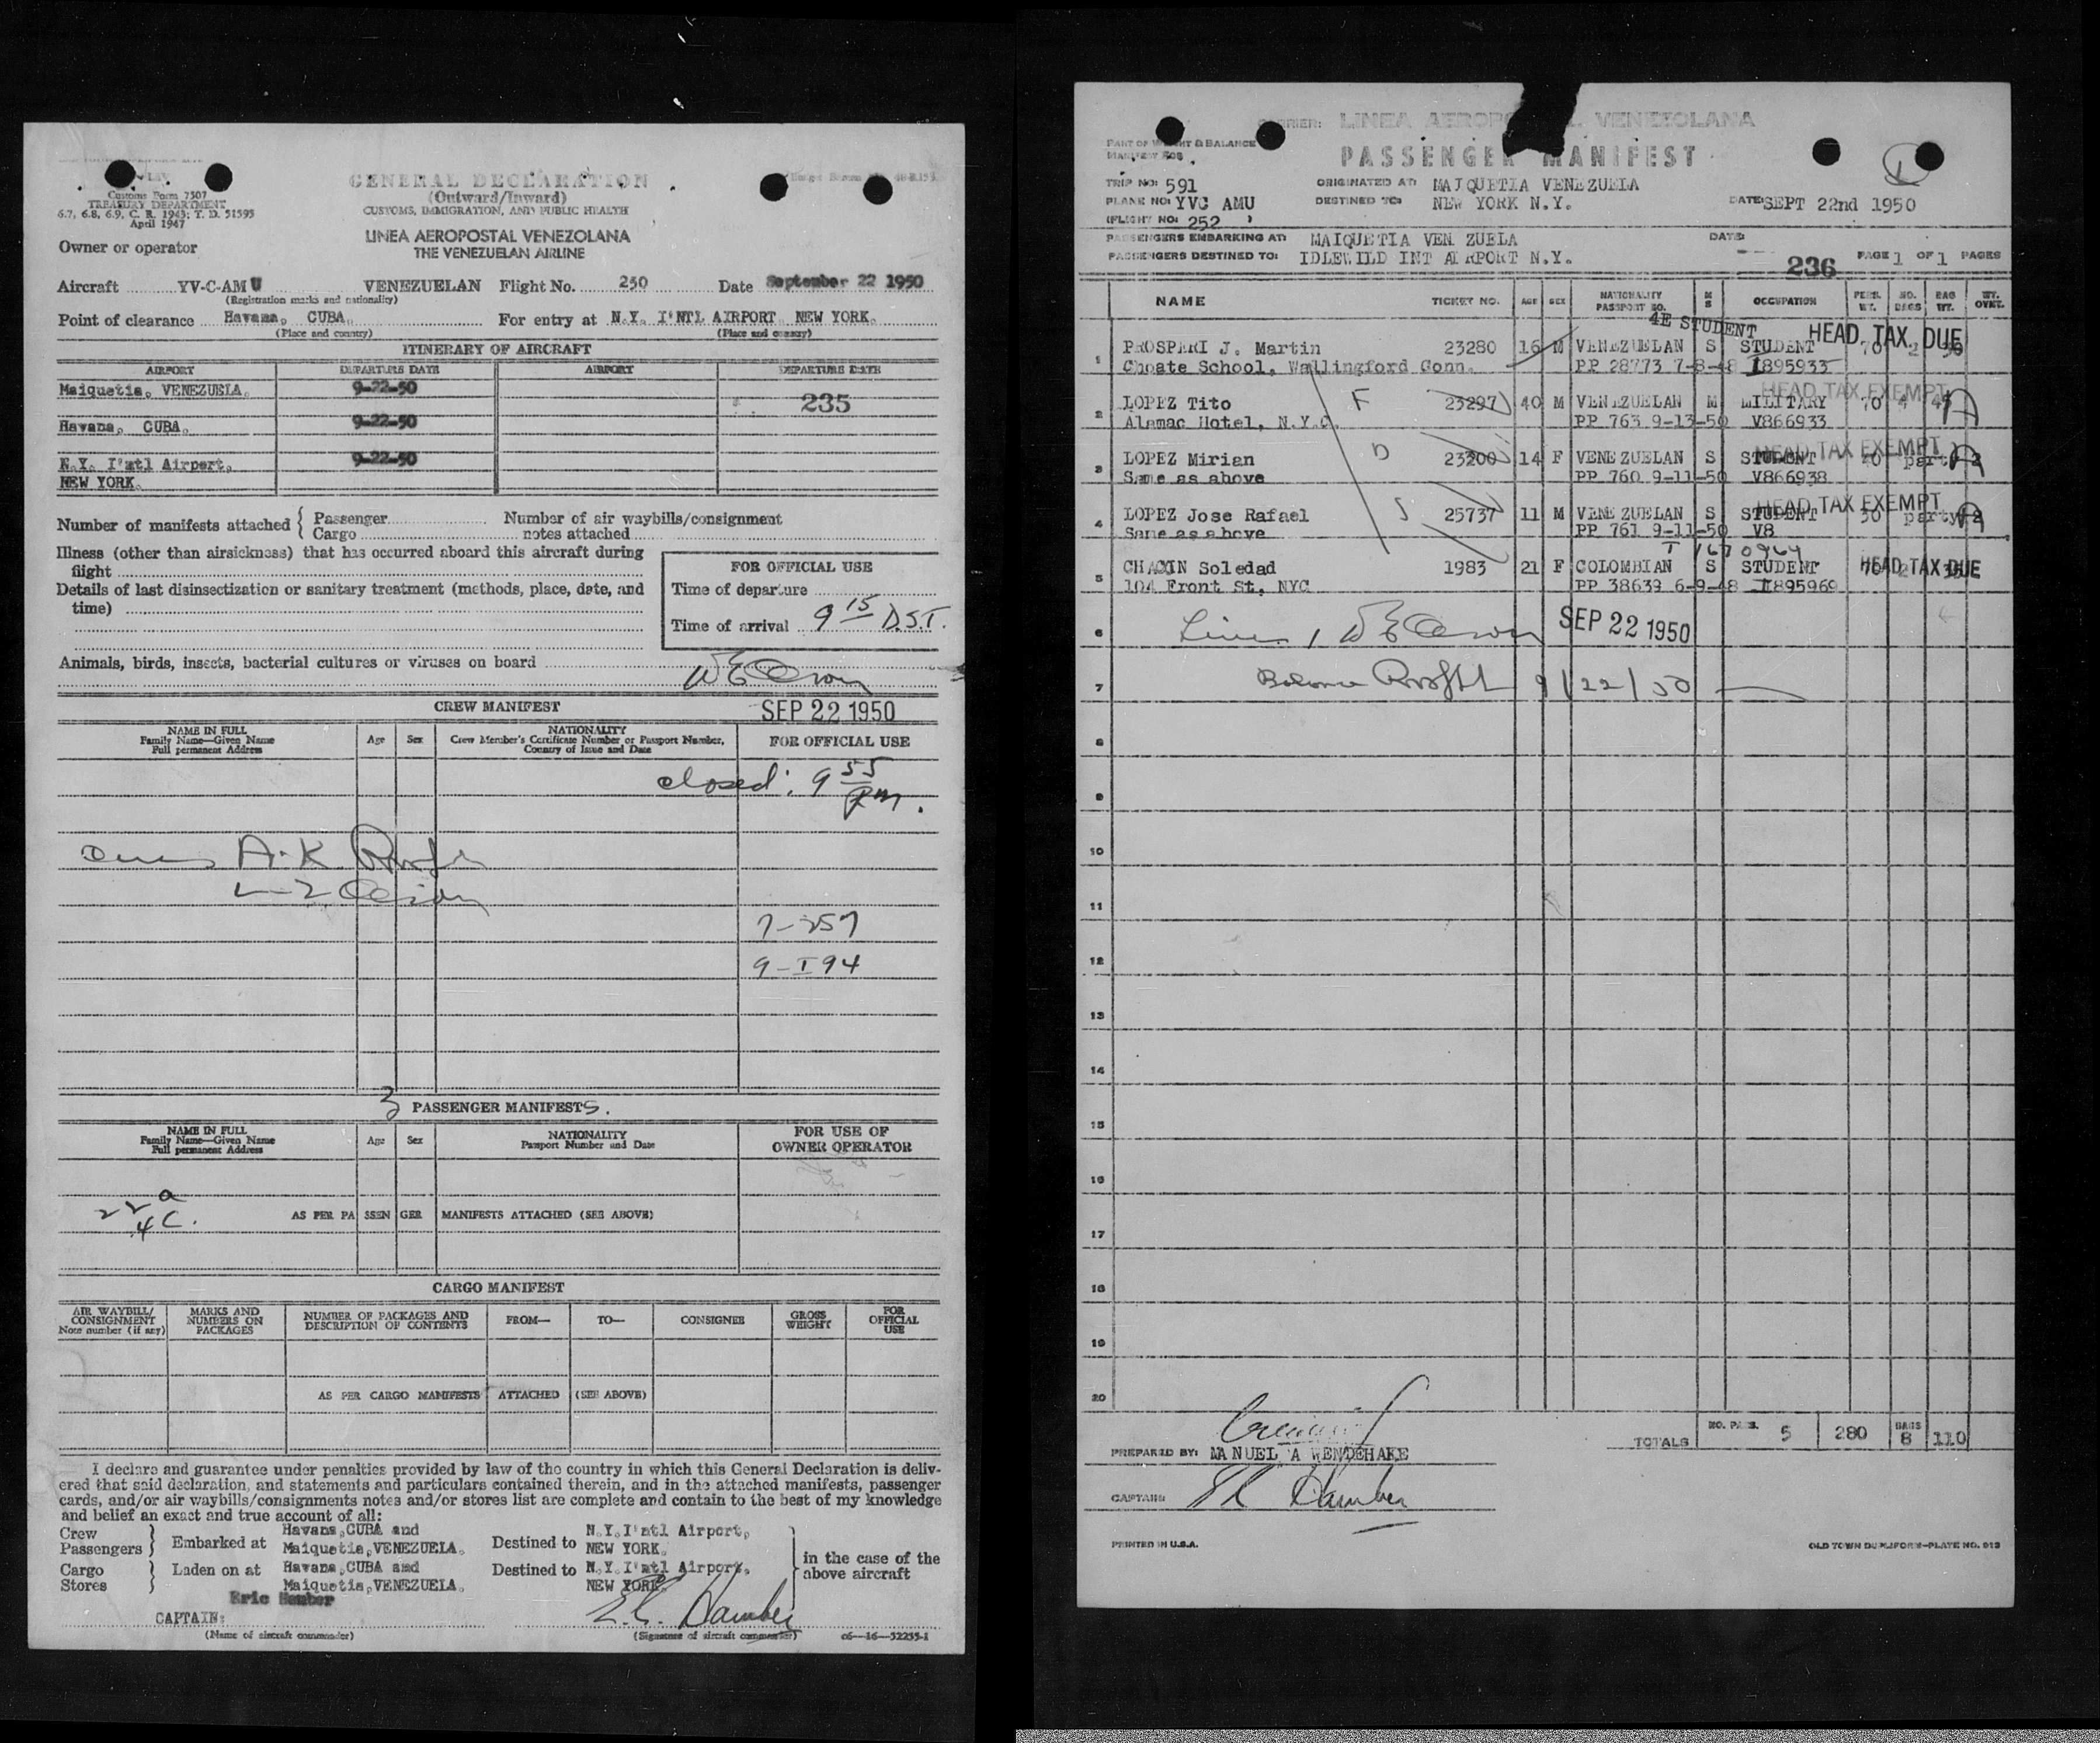 GENERAL DECLARATION
(Outward/Inward)
CUSTOMS, IMMIGRATION, AND PUBLIC HEALTH
Customs Form 7507
TREASURY DEPARTMENT
6.7, 6.8, 6.9, C. R. 1943; T. D. 51595
April 1947
LINEA AEROPOSTAL VENEZOLANA
THE VENEZUELAN AIRLINE
Owner or operator
Aircraft YV-C-AMU VENEZUELAN Flight No. 250 Date September 22 1950
(Registration marks and nationality)
Point of clearance Havana, CUBA. For entry at N.Y. I'NTL AIRPORT NEW YORK.
(Place and country) (Place and country)
ITINERARY OF AIRCRAFT
AIRPORT DEPARTURE DATE AIRPORT DEPARTURE DATE
Maiquetia, VENEZUELA. 9-22-50
235
Havana, CUBA. 9-22-50
N.Y. I'ntl Airport, 9-22-50
NEW YORK.
Number of manifests attached { Passenger Number of air waybills/consignment
Cargo notes attached
Illness (other than airsickness) that has occurred aboard this aircraft during
flight
Details of last disinsectization or sanitary treatment (methods, place, date, and
time)
FOR OFFICIAL USE
Time of departure
Time of arrival 9 15 D.S.T.
Animals, birds, insects, bacterial cultures or viruses on board
CREW MANIFEST SEP 22 1950
NAME IN FULL
Family Name—Given Name
Full permanent Address
Age Sex
NATIONALITY
Crew Member's Certificate Number or Passport Number,
Country of Issue and Date
FOR OFFICIAL USE
closed: 9 55
Pm.
A.K.
7-257
9-I94
3 PASSENGER MANIFESTS.
NAME IN FULL
Family Name—Given Name
Full permanent Address
Age Sex
NATIONALITY
Passport Number and Date
FOR USE OF
OWNER OPERATOR
22 a
4 C.
AS PER PASSENGER MANIFESTS ATTACHED (SEE ABOVE)
CARGO MANIFEST
AIR WAYBILL/
CONSIGNMENT
Note number (if any)
MARKS AND
NUMBERS ON
PACKAGES
NUMBER OF PACKAGES AND
DESCRIPTION OF CONTENTS
FROM— TO— CONSIGNEE
GROSS
WEIGHT
FOR
OFFICIAL
USE
AS PER CARGO MANIFESTS ATTACHED (SEE ABOVE)
I declare and guarantee under penalties provided by law of the country in which this General Declaration is deliv-
ered that said declaration, and statements and particulars contained therein, and in the attached manifests, passenger
cards, and/or air waybills/consignments notes and/or stores list are complete and contain to the best of my knowledge
and belief an exact and true account of all:
Crew
Passengers } Embarked at Havana,CUBA and Maiquetia,VENEZUELA. Destined to N.Y.I'ntl Airport, NEW YORK.
Cargo
Stores } Laden on at Havana,CUBA and Maiquetia,VENEZUELA. Destined to N.Y.I'ntl Airport, NEW YORK.
in the case of the
above aircraft
Eric Hamber
CAPTAIN: E.C. Hamber
(Name of aircraft commander) (Signature of aircraft commander) c6—16—52255-1
CARRIER: LINEA AEROPO L VENEZOLANA
PART OF WEIGHT & BALANCE
MANIFEST
PASSENGER MANIFEST
1
TRIP NO: 591 ORIGINATED AT: MAIQUETIA VENEZUELA
PLANE NO: YVC AMU DESTINED TO: NEW YORK N.Y. DATE: SEPT 22nd 1950
(FLIGHT NO: 252 )
PASSENGERS EMBARKING AT: MAIQUETIA VEN ZUELA DATE:
PASSENGERS DESTINED TO: IDLEWILD INT AIRPORT N.Y. 236 PAGE 1 OF 1 PAGES
NAME TICKET NO. AGE SEX NATIONALITY PASSPORT NO. M S OCCUPATION PERS. WT. NO. BAGS BAG WT. WT. OVWT.
4E STUDENT HEAD TAX DUE
1 PROSPERI J. Martin 23280 16 M VENEZUELAN S STUDENT 70 2 30
Choate School, Wallingford Conn. PP 28773 7-8-48 I895933
HEAD TAX EXEMPT
2 LOPEZ Tito F 23297 40 M VENEZUELAN M MILITARY 70 4
Alamac Hotel, N.Y.C. PP 763 9-13-50 V866933
HEAD TAX EXEMPT
3 LOPEZ Mirian D 23200 14 F VENEZUELAN S STUDENT party
Same as above PP 760 9-11-50 V866938
HEAD TAX EXEMPT
4 LOPEZ Jose Rafael S 25737 11 M VENEZUELAN S STUDENT 30 party
Same as above PP 761 9-11-50 V8
T 1670964
5 CHACIN Soledad 1983 21 F COLOMBIAN S STUDENT HEAD TAX DUE
104 Front St, NYC PP 38639 6-9-48 I895969
6 SEP 22 1950
7 9/22/50
8
9
10
11
12
13
14
15
16
17
18
19
20
TOTALS NO. PASS. 5 280 BAGS 8 110
PREPARED BY: MANUEL A WENDEHAKE
CAPTAIN: Hamber
PRINTED IN U.S.A. OLD TOWN DUPLIFORM—PLATE NO. 913